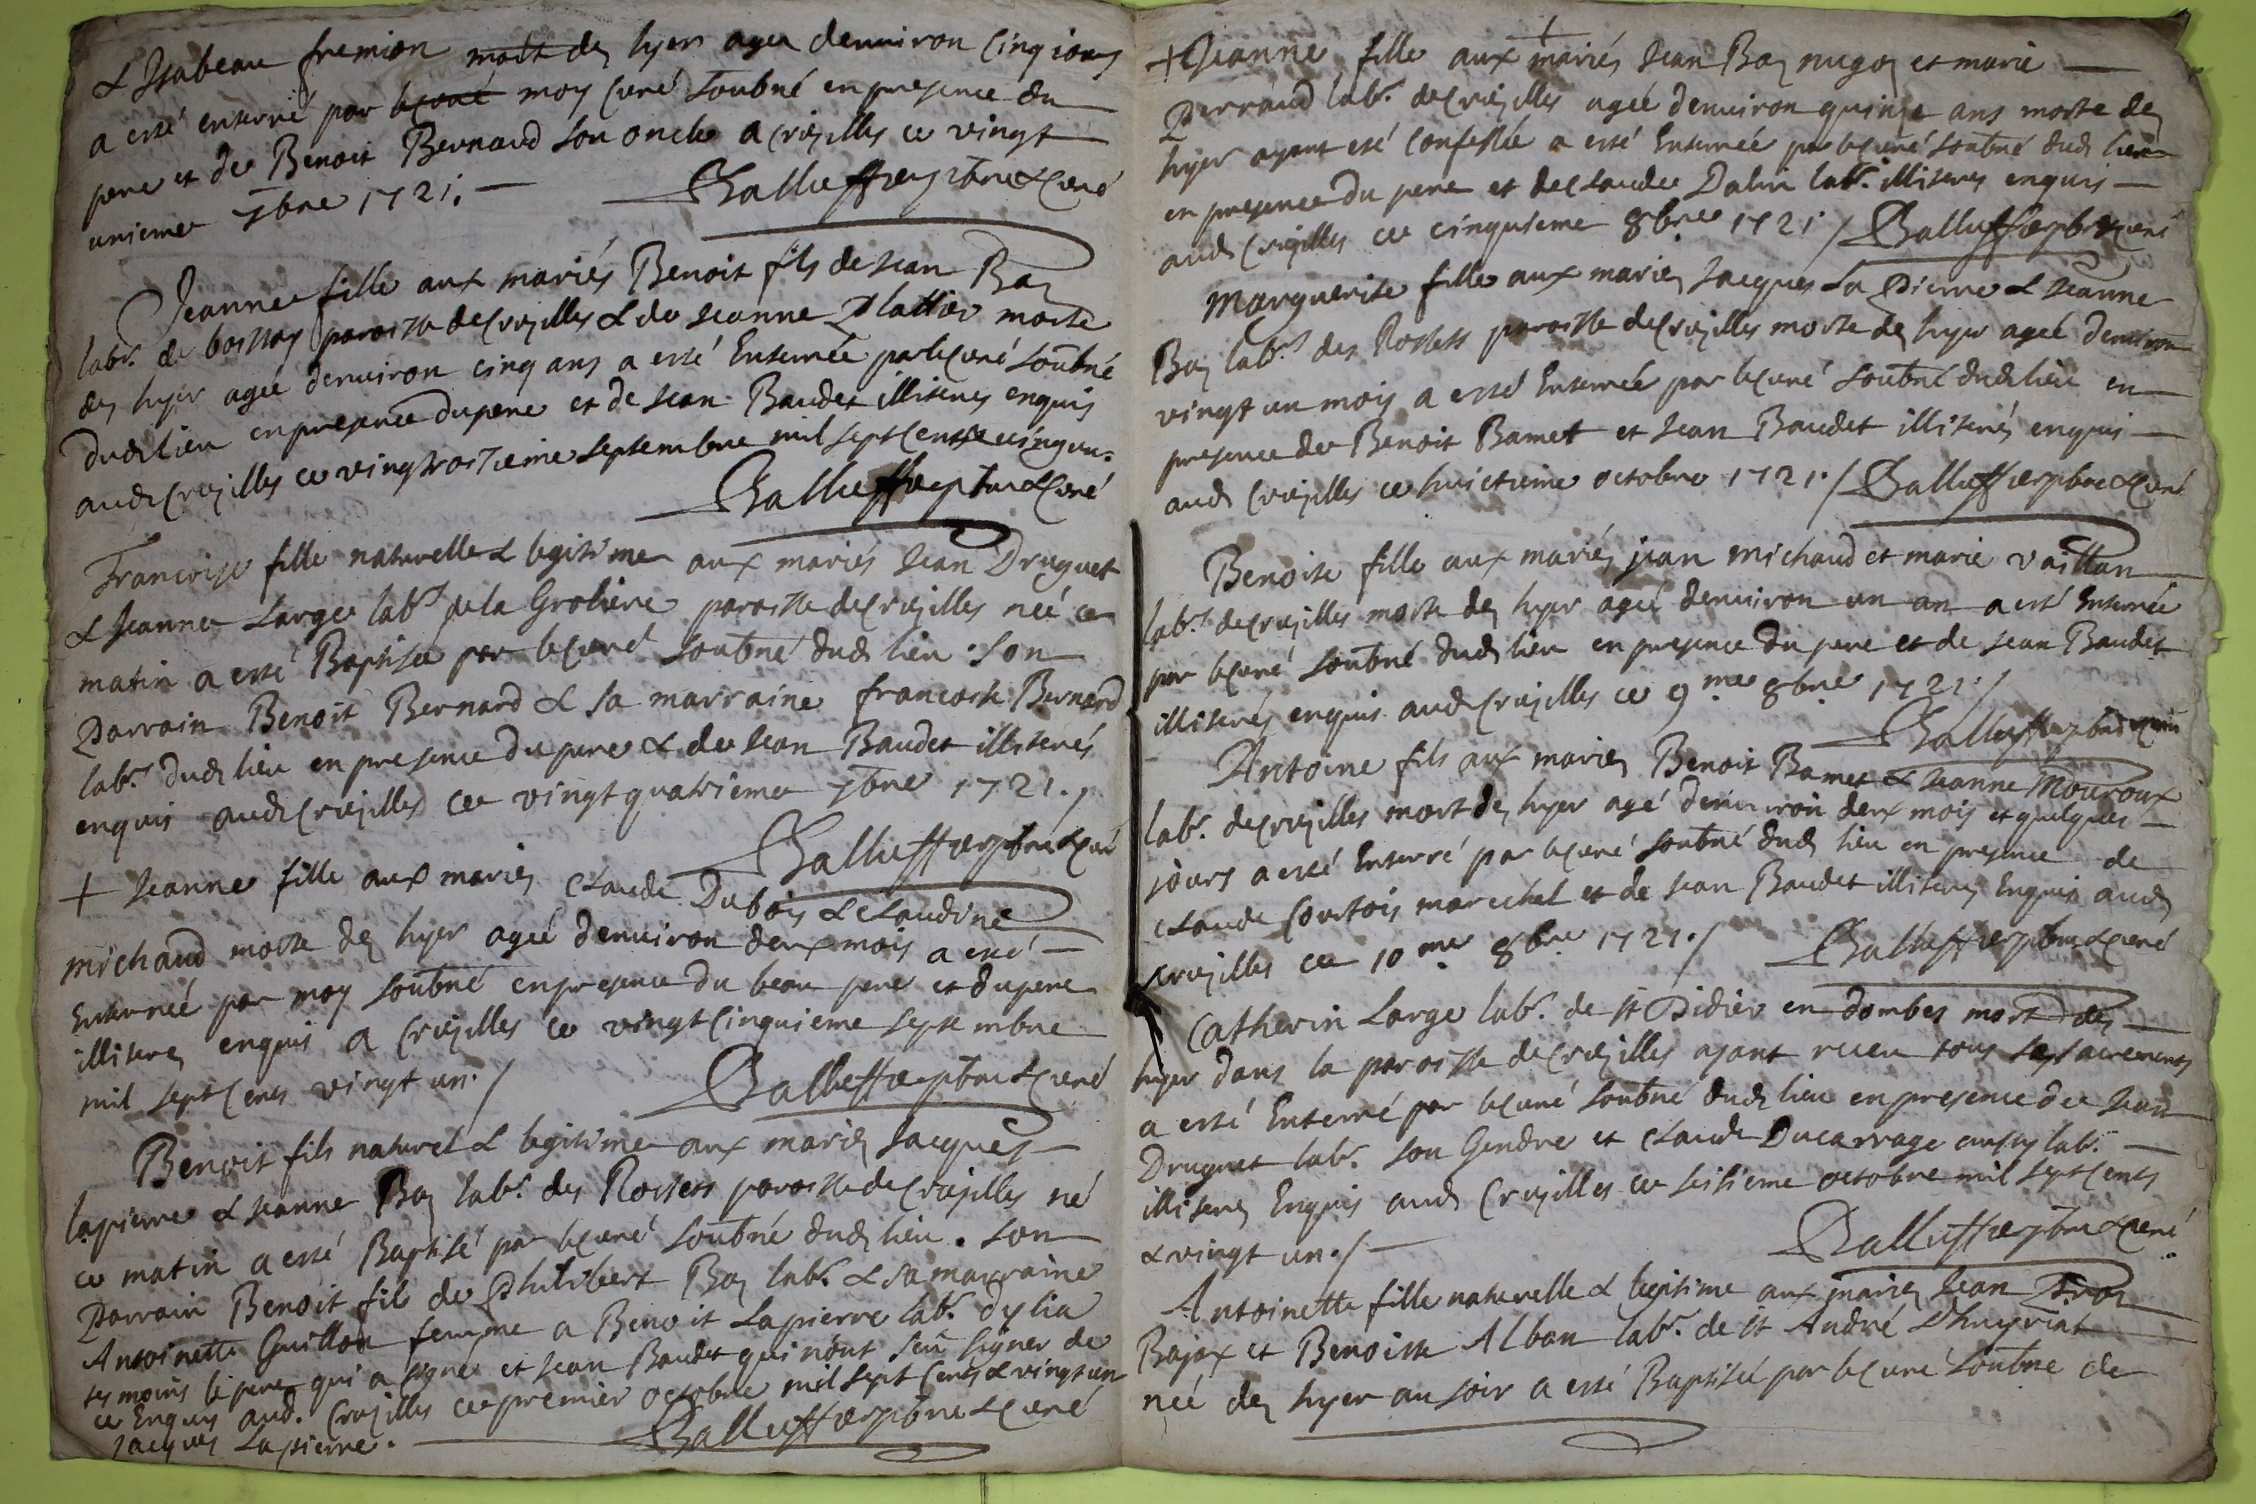 & Isabeau fremion mort dez hyer agee denuiron Cinq jours
a esté enterré par le curé moy Curé Soubné en presence du
pere et de Benoit Bernard Son oncle a crusilles ce vingt
unieme 7bre 1721.
Jeanne fille aux mariés Benoit fils de Jean Boz
labr. de paroisse de Crusilles & de Jeanne Plattier morte
dez hyer agee denuiron cinq ans a esté Enterrée par le Curé Soubné
dud lieu en presence du pere et de Jean Baudet illiterés enquis
aud Crusilles ce vingt troisieme septembre mil sept cents vingt un.
ptre & Curé
Francoise fille naturelle & legitime aux mariés Jean Druguet
& Jeanne Large labrs de la Groliere paroisse de Crusilles neé ce
matin a esté Baptisée par le Curé Soubné dud lieu. Son
Parrain Benoit Bernard & Sa marraine francoise Bernard
labrs dud lieu en presence du pere & de Jean Baudet illiterés
enquis aud Crusilles ce vingt quatrieme 7bre 1721.
ptre & Curé
+ Jeanne fille aux mariez Claude Dubois & Claudine
michaud morte dez hyer agée denuiron deux mois a esté
Enterreé par moy Soubné en presence du beau pere et du pere
illiterez enquis a Crusilles ce vingt Cinquieme septembre
mil sept Cents vingt un. /
ptre & Curé
Benoit fils naturel & legitime aux mariez Jacques
lapierre & Jeanne Boz labr. des Rossets paroisse de Crusilles né
ce matin a esté Baptisé par le Curé Soubné dud lieu. Son
Parrain Benoit fils de Philibert Boz labr. & sa marraine
Antoinette Guillon femme a Benoit Lapierre labr. dylia
tesmoins le pere qui a signé et Jean Baudet qui n'ont sçeu signer de
ce Enquis aud. Crusilles ce premier octobre mil sept Cents & vingt un
Jacques Lapierre. ptre & Curé
+ Jeanne fille aux mariés Jean Boz et marie
Perraud labr. de Crusilles ageé denuiron quinze ans morte dez
hyer ayant esté Confessée a esté Enterrée par le Curé Soubné dud lieu
en presence du pere et de Claude labr. illiteres enquis
aud Crusilles ce cinquieme 8bre 1721 / ptre & Curé
Marguerite fille aux mariez Jacques La Pierre & Jeanne
Boz labrs des Rossets paroisse de Crusilles morte dez hyer ageé denuiron
vingt un mois a esté Enterrée par le Curé Soubné dud lieu en
presence de Benoit Bamet et Jean Baudet illiterés enquis
aud Crusilles ce huictieme octobre 1721. / ptre & Curé
Benoite fille aux mariez jean michaud et marie vaillan
labrs de Crusilles morte dez hyer ageé denuiron un an a esté Enterrée
par le Curé Soubné dud lieu en presence du pere et de Jean Baudet
illiterés enquis aud Crusilles ce 9me 8bre 1721. /
Antoine fils aux mariez Benoit Bamet & Jeanne Mouroux
labr. de Crusilles mort dez hyer agé denuiron deux mois et quelques
jours a esté Enterré par le Curé Soubné dud lieu en presence de
Claude Courtois marechal et de Jean Baudet illiterez Enquis aud
Crusilles ce 10me 8bre 1721. / ptre & Curé
Catherin Large labr. de st Didier en dombes mort dez
hyer dans la paroisse de Crusilles ayant receu tous ses sacrements
a esté Enterré par le Curé Soubné dud lieu en presence de Jean
Druguet labr. Son Gendre et Claude Ducarrage aussy labr.
illiterez Enquis aud Crusilles ce seisieme octobre mil sept Cents
& vingt un. /
ptre & Curé
Antoinette fille naturelle & legitime aux mariez Jean
Bajox et Benoiste Alban labr. de st André D'huyriat
neé dez hyer au soir a esté Baptisée par le Curé Soubné de